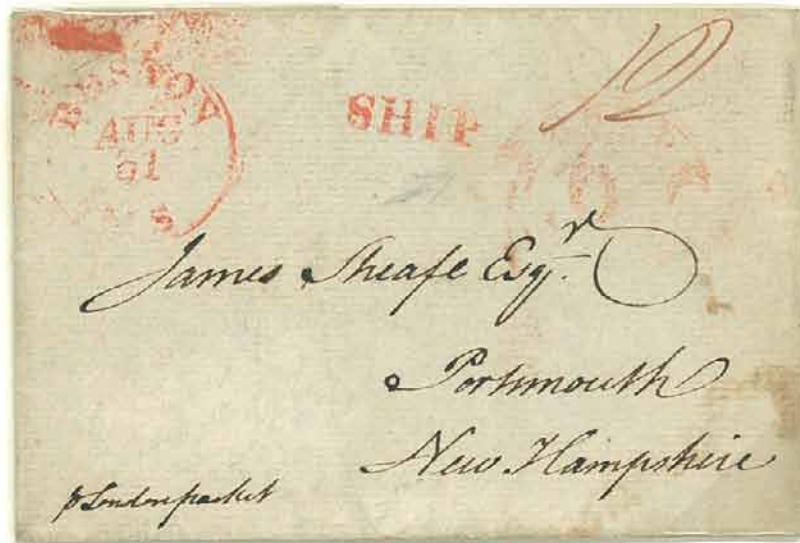 BOSTON
AUG
31
MAS
SHIP
12
James Sheafe Esqr.
Portsmouth
New Hampshire
p London packet